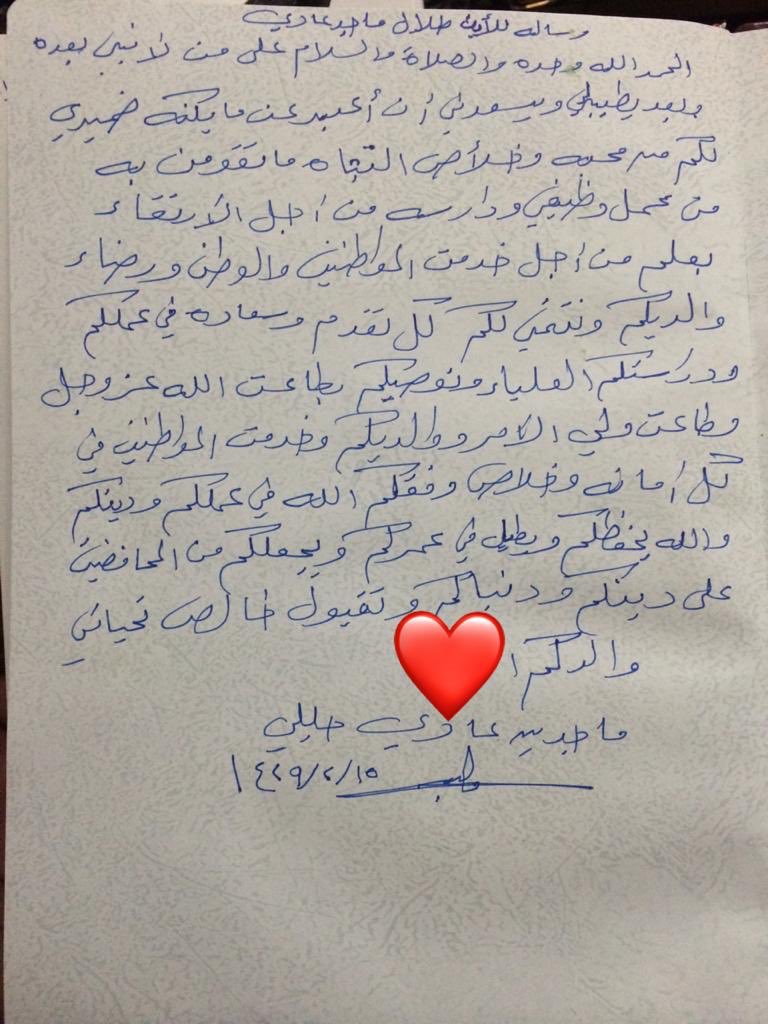 رساله للأبن طلال ماجد عادي
الحمد الله وحده والصلاة والسلام على من لا نبي بعده
وبعد يطيبلي ويسعدني أن أعبر عن ما يكنه ضميري
لكم من محبه وخلأص التجاه ماتقومن به
من عمل وظيفي ودارسه من اجل الأرتقاء
بعلم من أجل خدمت المواطنين والوطن ورضاء
والديكم ونتمني لكم كل تقدم وسعاده في عملكم
ودراستكم العلياء ونوصيكم بطاعت الله عز وجل
وطاعت ولي الامر ووالديكم وخدمت المواطنين في
كل أمانه وخلاص وفقكم الله في عملكم ودينكم
والله يحفظكم ويطيل في عمركم ويجعلكم من المحافضين
على دينكم ودنياكم وتقبول خالص تحياتي
والدكم
ماجد بن عادي
١٤٣٩/٢/١٥